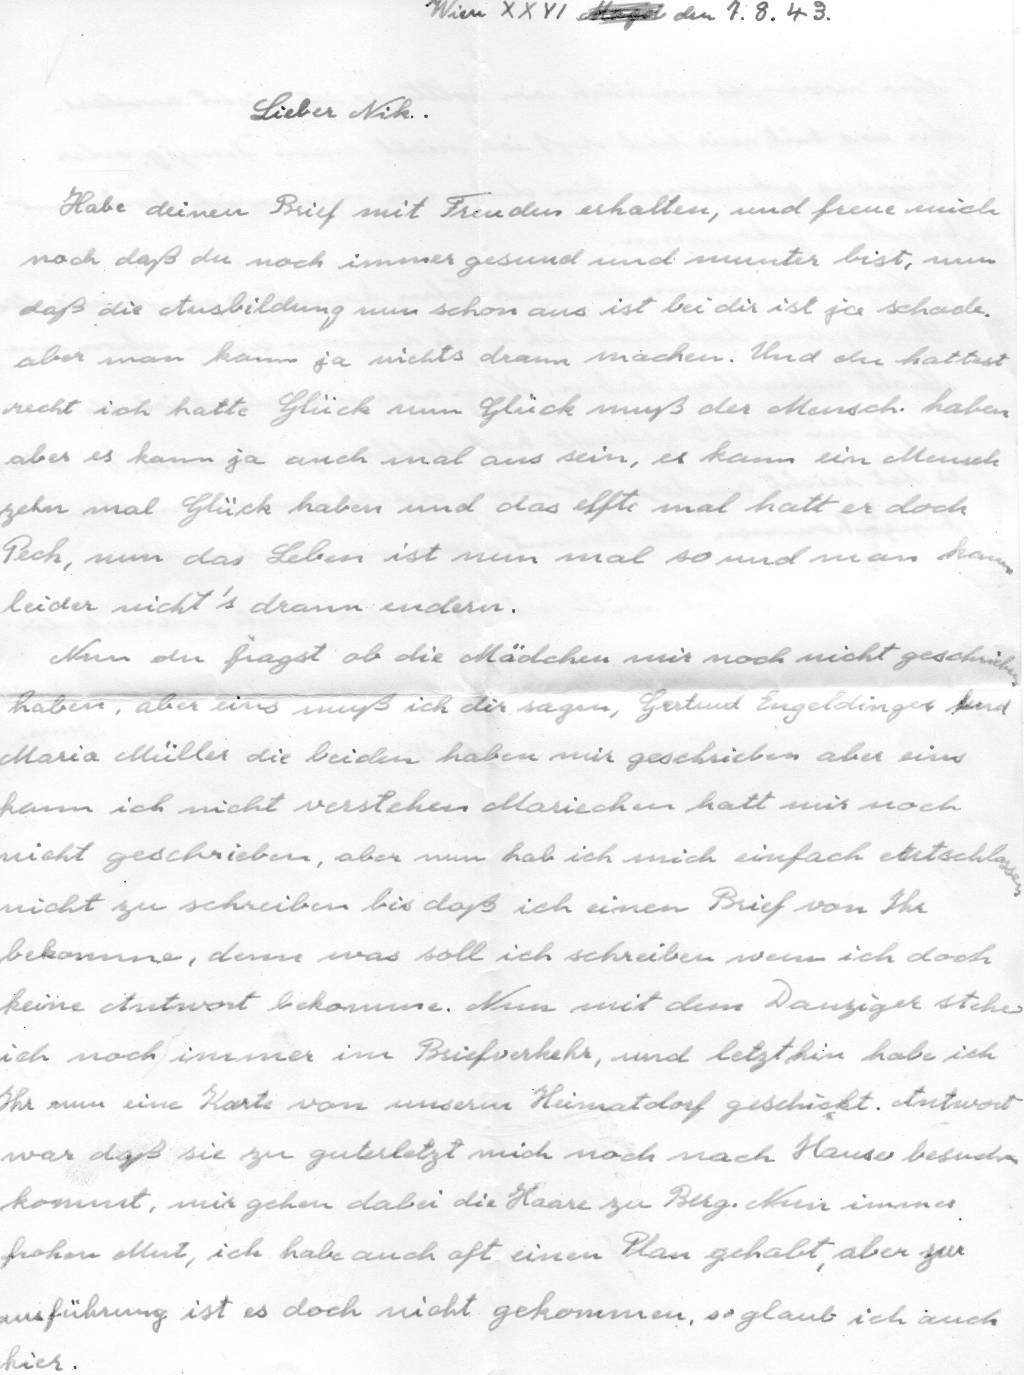 Wien XXVI den 1. 8. 43.
Lieber Nik.
Habe deinen Brief mit Freuden erhalten, und freue mich
noch daß du noch immer gesund und munter bist, nun
daß die Ausbildung nun schon aus ist bei dir ist ja schade.
aber man kann ja nichts drann machen. Und du hattest
recht ich hatte Glück nun Glück muß der Mensch haben
aber es kann ja auch mal aus sein, es kann ein Mensch
zehn mal Glück haben und das elfte mal hatt er doch
Pech, nun das Leben ist nun mal so und man kann
leider nicht's drann endern.
Nun du fragst ob die Mädchen mir noch nicht geschrieben
haben, aber eins muß ich dir sagen, Gertrud Engeldinger und
Maria Müller die beiden haben mir geschrieben aber eins
kann ich nicht verstehen Mariechen hatt mir noch
nicht geschrieben, aber nun hab ich mich einfach entschlossen
nicht zu schreiben bis daß ich einen Brief von Ihr
bekomme, denn was soll ich schreiben wenn ich doch
keine Antwort bekomme. Nun mit dem Danziger stehe
ich noch immer im Briefverkehr, und letzthin habe ich
Ihr nun eine Karte von unserm Heimatdorf geschickt. Antwort
war daß sie zu guterletzt mich noch nach Hause besuchen
kommt, mir gehen dabei die Haare zu Berg. Nun immer
frohen Mut, ich habe auch oft einen Plan gehabt, aber zur
ausführung ist es doch nicht gekommen, so glaub ich auch
hier.